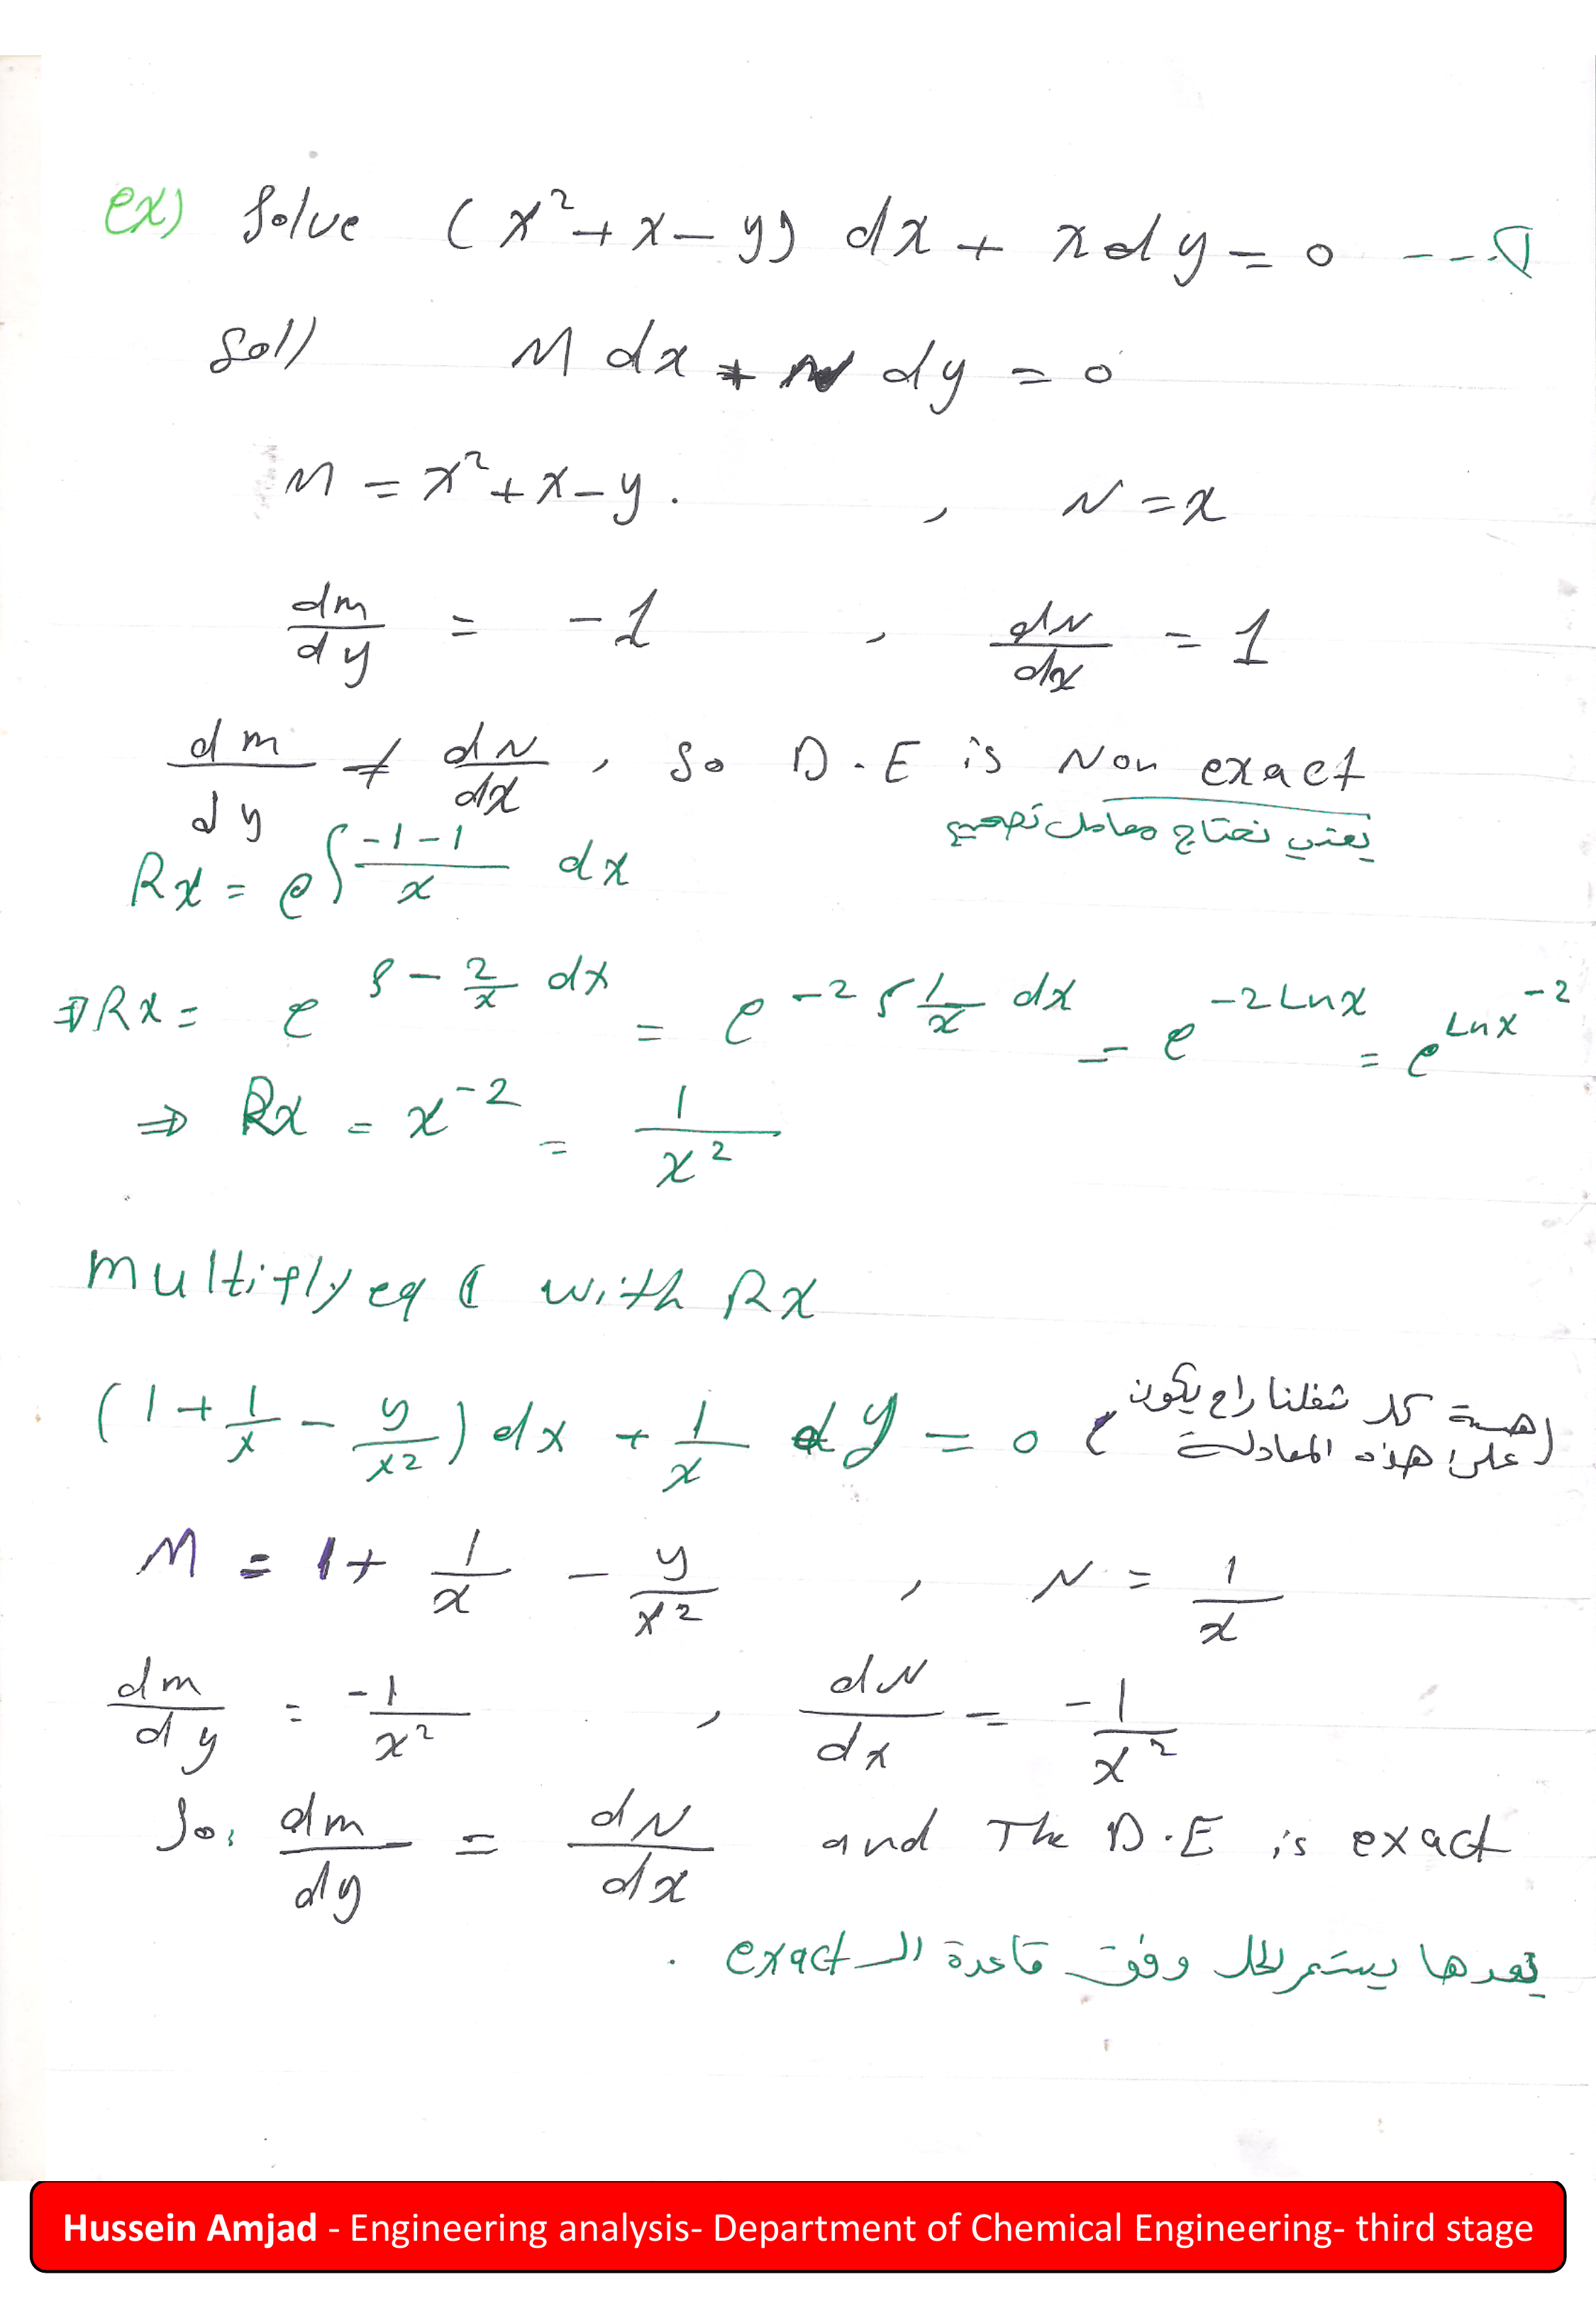 ex) Solve (x²+x-y) dx + x dy = 0 ---①
Sol) M dx + N dy = 0
M = x²+x-y. , N = x
dm/dy = -1 , dN/dx = 1
dm/dy ≠ dN/dx , So D.E is Non exact
يعني نحتاج معامل تصحيح
Rx = e^∫ (-1-1)/x dx
⇒ Rx = e^∫ -2/x dx = e^-2∫ 1/x dx = e^-2Lnx = e^Lnx^-2
⇒ Rx = x^-2 = 1/x²
Multiply eq 1 with Rx
(1 + 1/x - y/x²) dx + 1/x dy = 0 , (هسة كل شغلنا راح يكون
على هذه المعادلة)
M = 1 + 1/x - y/x² , N = 1/x
dm/dy = -1/x² , dN/dx = -1/x²
So, dm/dy = dN/dx and The D.E is exact
بعدها يستمر الحل وفق قاعدة الـ exact .
Hussein Amjad - Engineering analysis- Department of Chemical Engineering- third stage